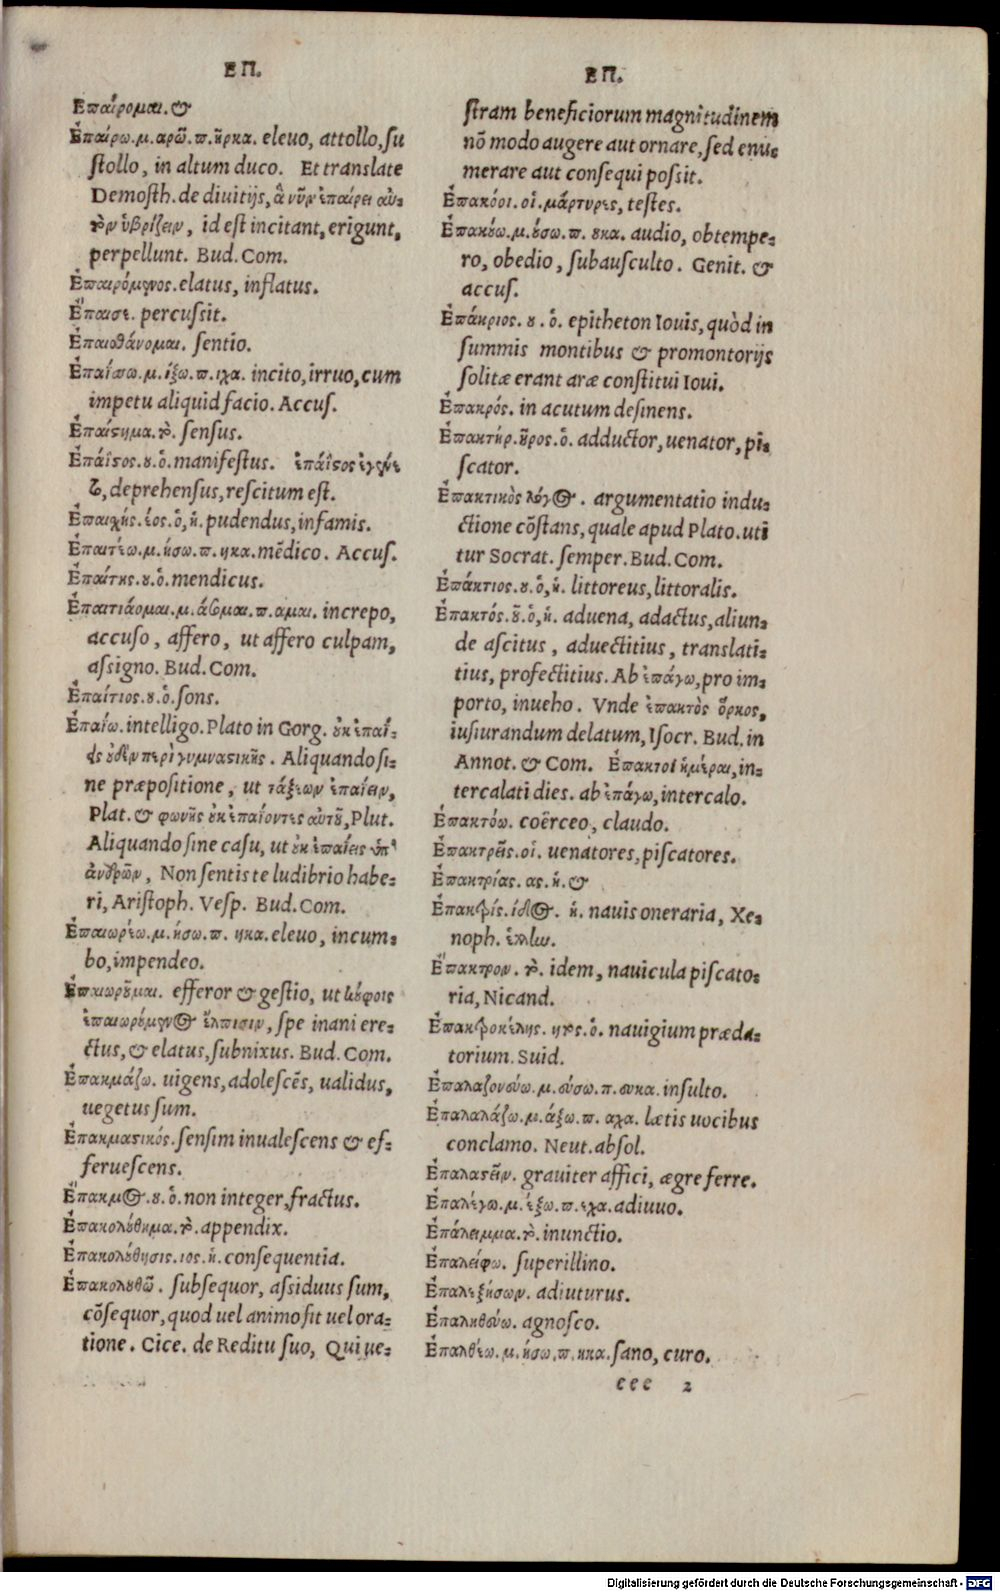 ΕΠ.
Ἐπαίρομαι. &
Ἐπαίρω. μ. αρῶ. π. ῆρκα. eleuo, attollo, su
ſtollo, in altum duco. Et translate
Demoſth. de diuitijs, ἃ νῦν ἐπαίρει αὐ-
τὸν ὑβρίζειν, id eſt incitant, erigunt,
perpellunt. Bud. Com.
Ἐπαιρόμενος. elatus, inflatus.
Ἔπαισε. percuſsit.
Ἐπαισθάνομαι. ſentio.
Ἐπαΐσσω. μ. ίξω. π. ιχα. incito, irruo, cum
impetu aliquid facio. Accuſ.
Ἐπαίστημα. τὸ. ſenſus.
Ἐπάϊστος. ου. ὁ. manifeſtus. ἐπάϊστος ἐγένε
το, deprehenſus, reſcitum eſt.
Ἐπαιχής. έος. ὁ, ἡ. pudendus, infamis.
Ἐπαιτέω. μ. ήσω. π. ηκα. mēdico. Accuſ.
Ἐπαίτης. ου. ὁ. mendicus.
Ἐπαιτιάομαι. μ. άσομαι. π. αμαι. increpo,
accuſo, affero, ut affero culpam,
aſsigno. Bud. Com.
Ἐπαίτιος. ου. ὁ. ſons.
Ἐπαΐω. intelligo. Plato in Gorg. οὐκ ἐπαΐ-
εις οὐδὲν περὶ γυμναστικῆς. Aliquando ſi-
ne præpoſitione, ut τάξεων ἐπαΐειν,
Plat. & φωνῆς οὐκ ἐπαΐοντες αὐτοῦ, Plut.
Aliquando ſine caſu, ut οὐκ ἐπαΐεις ὑπ'
ἀνδρῶν, Non ſentis te ludibrio habe-
ri, Ariſtoph. Veſp. Bud. Com.
Ἐπαιωρέω. μ. ήσω. π. ηκα. eleuo, incum-
bo, impendeo.
Ἐπαιωροῦμαι. efferor & geſtio, ut κούφοις
ἐπαιωρούμενος ἔλπισιν, ſpe inani ere-
ctus, & elatus, ſubnixus. Bud. Com.
Ἐπακμάζω. uigens, adoleſcēs, ualidus,
uegetus ſum.
Ἐπακμαστικός. ſenſim inualeſcens & ef-
ferueſcens.
Ἔπακμος. ου. ὁ. non integer, fractus.
Ἐπακολούθημα. τὸ. appendix.
Ἐπακολούθησις. ιος. ἡ. conſequentia.
Ἐπακολουθῶ. ſubſequor, aſsiduus ſum,
cōſequor, quod uel animo fit uel ora-
tione. Cice. de Reditu ſuo, Qui ue-
ΕΠ.
ſtram beneficiorum magnitudinem
nō modo augere aut ornare, ſed enu-
merare aut conſequi poſsit.
Ἐπακόοι. οἱ. μάρτυρες, teſtes.
Ἐπακούω. μ. ούσω. π. ουκα. audio, obtempe-
ro, obedio, ſubauſculto. Genit. &
accuſ.
Ἐπάκριος. ου. ὁ. epitheton Iouis, quòd in
ſummis montibus & promontorijs
ſolitæ erant aræ conſtitui Ioui.
Ἐπακρός. in acutum deſinens.
Ἐπακτήρ. ῆρος. ὁ. adductor, uenator, pi-
ſcator.
Ἐπακτικὸς λόγος. argumentatio indu-
ctione cōſtans, quale apud Plato. uti
tur Socrat. ſemper. Bud. Com.
Ἐπάκτιος. ου. ὁ, ἡ. littoreus, littoralis.
Ἐπακτός. οῦ. ὁ, ἡ. aduena, adactus, aliun-
de aſcitus, aduectitius, translati-
tius, profectitius. Ab ἐπάγω, pro im-
porto, inueho. Vnde ἐπακτὸς ὅρκος,
iuſiurandum delatum, Iſocr. Bud. in
Annot. & Com. Ἐπακτοὶ ἡμέραι, in-
tercalati dies. ab ἐπάγω, intercalo.
Ἐπακτόω. coërceo, claudo.
Ἐπακτρεῖς. οἱ. uenatores, piſcatores.
Ἐπακτρίας. ας. ἡ. &
Ἐπακτρίς. ίδος. ἡ. nauis oneraria, Xe-
noph. ἑλλω.
Ἔπακτρον. τὸ. idem, nauicula piſcato-
ria, Nicand.
Ἐπακτροκέλης. ητος. ὁ. nauigium præda-
torium. Suid.
Ἐπαλαζονεύω. μ. εύσω. π. ευκα. inſulto.
Ἐπαλαλάζω. μ. άξω. π. αχα. lætis uocibus
conclamo. Neut. abſol.
Ἐπαλαστεῖν. grauiter affici, ægre ferre.
Ἐπαλέγω. μ. έξω. π. εχα. adiuuo.
Ἐπάλειμμα. τὸ. inunctio.
Ἐπαλείφω. ſuperillino.
Ἐπαλεξήσων. adiuturus.
Ἐπαληθεύω. agnoſco.
Ἐπαλθέω. μ. ήσω. π. ηκα. ſano, curo.
eee 2
Digitalisierung gefördert durch die Deutsche Forschungsgemeinschaft - DFG